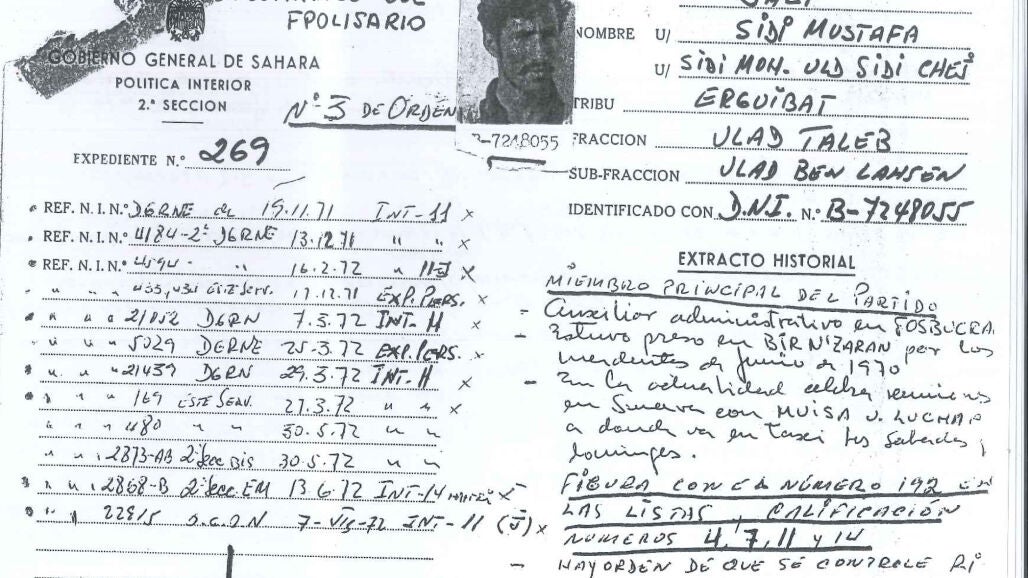 FPOLISARIO
GOBIERNO GENERAL DE SAHARA
POLITICA INTERIOR
2.ª SECCION
Nº 3 DE ORDEN
EXPEDIENTE N.º 269
B-7248055
NOMBRE U/ SIDI MUSTAFA
U/ SIDI MOH. ULD SIDI CHEJ
TRIBU ERGUIBAT
FRACCION ULAD TALEB
SUB-FRACCION ULAD BEN LAHSEN
IDENTIFICADO CON D.N.I. N.º B-7248055
REF. N. I. N.º DGRNE de 19.11.71 INT-11 x
REF. N. I. N.º 4184-2ª DGRNE 13.12.71 " " x
REF. N. I. N.º " 16.2.72 " x
" 17.12.71 EXP. PERS. x
" " " 21052 DGRN 7.3.72 INT-H x
" " " 5029 DGRNE 25-3.72 EXP. PERS. x
" " " 21439 DGRN 29.3.72 INT-H x
" " " 169 ESTE SERV. 27.3.72 " " x
" " " 480 " " 30.5.72 " "
" " 2873-AB 2ª Secc Bis 30.5.72 " "
" " 2868-B 2ª Secc. EM 13.6.72 INT-14 x
" " 22815 7-VII-72 INT-11 (J) x
EXTRACTO HISTORIAL
MIEMBRO PRINCIPAL DEL PARTIDO
- Auxiliar administrativo en FOSBUCRA
- Estuvo preso en BIRNZARAN por los
incidentes de Junio de 1970
- En la actualidad celebra reuniones
en Smara con MUISA U. LUCHAA
a donde va en taxi los Sabados y
domingos.
- FIGURA CON EL NÚMERO 192 EN
LAS LISTAS, CALIFICACIÓN
NUMEROS 4, 7, 11 y 14
- HAY ORDEN DE QUE SE CONTROLE